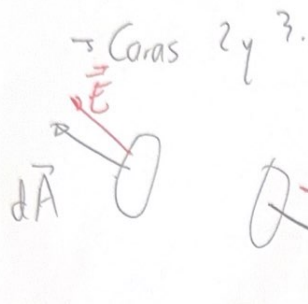 → Caras 2 y 3.
E⃗
dA⃗